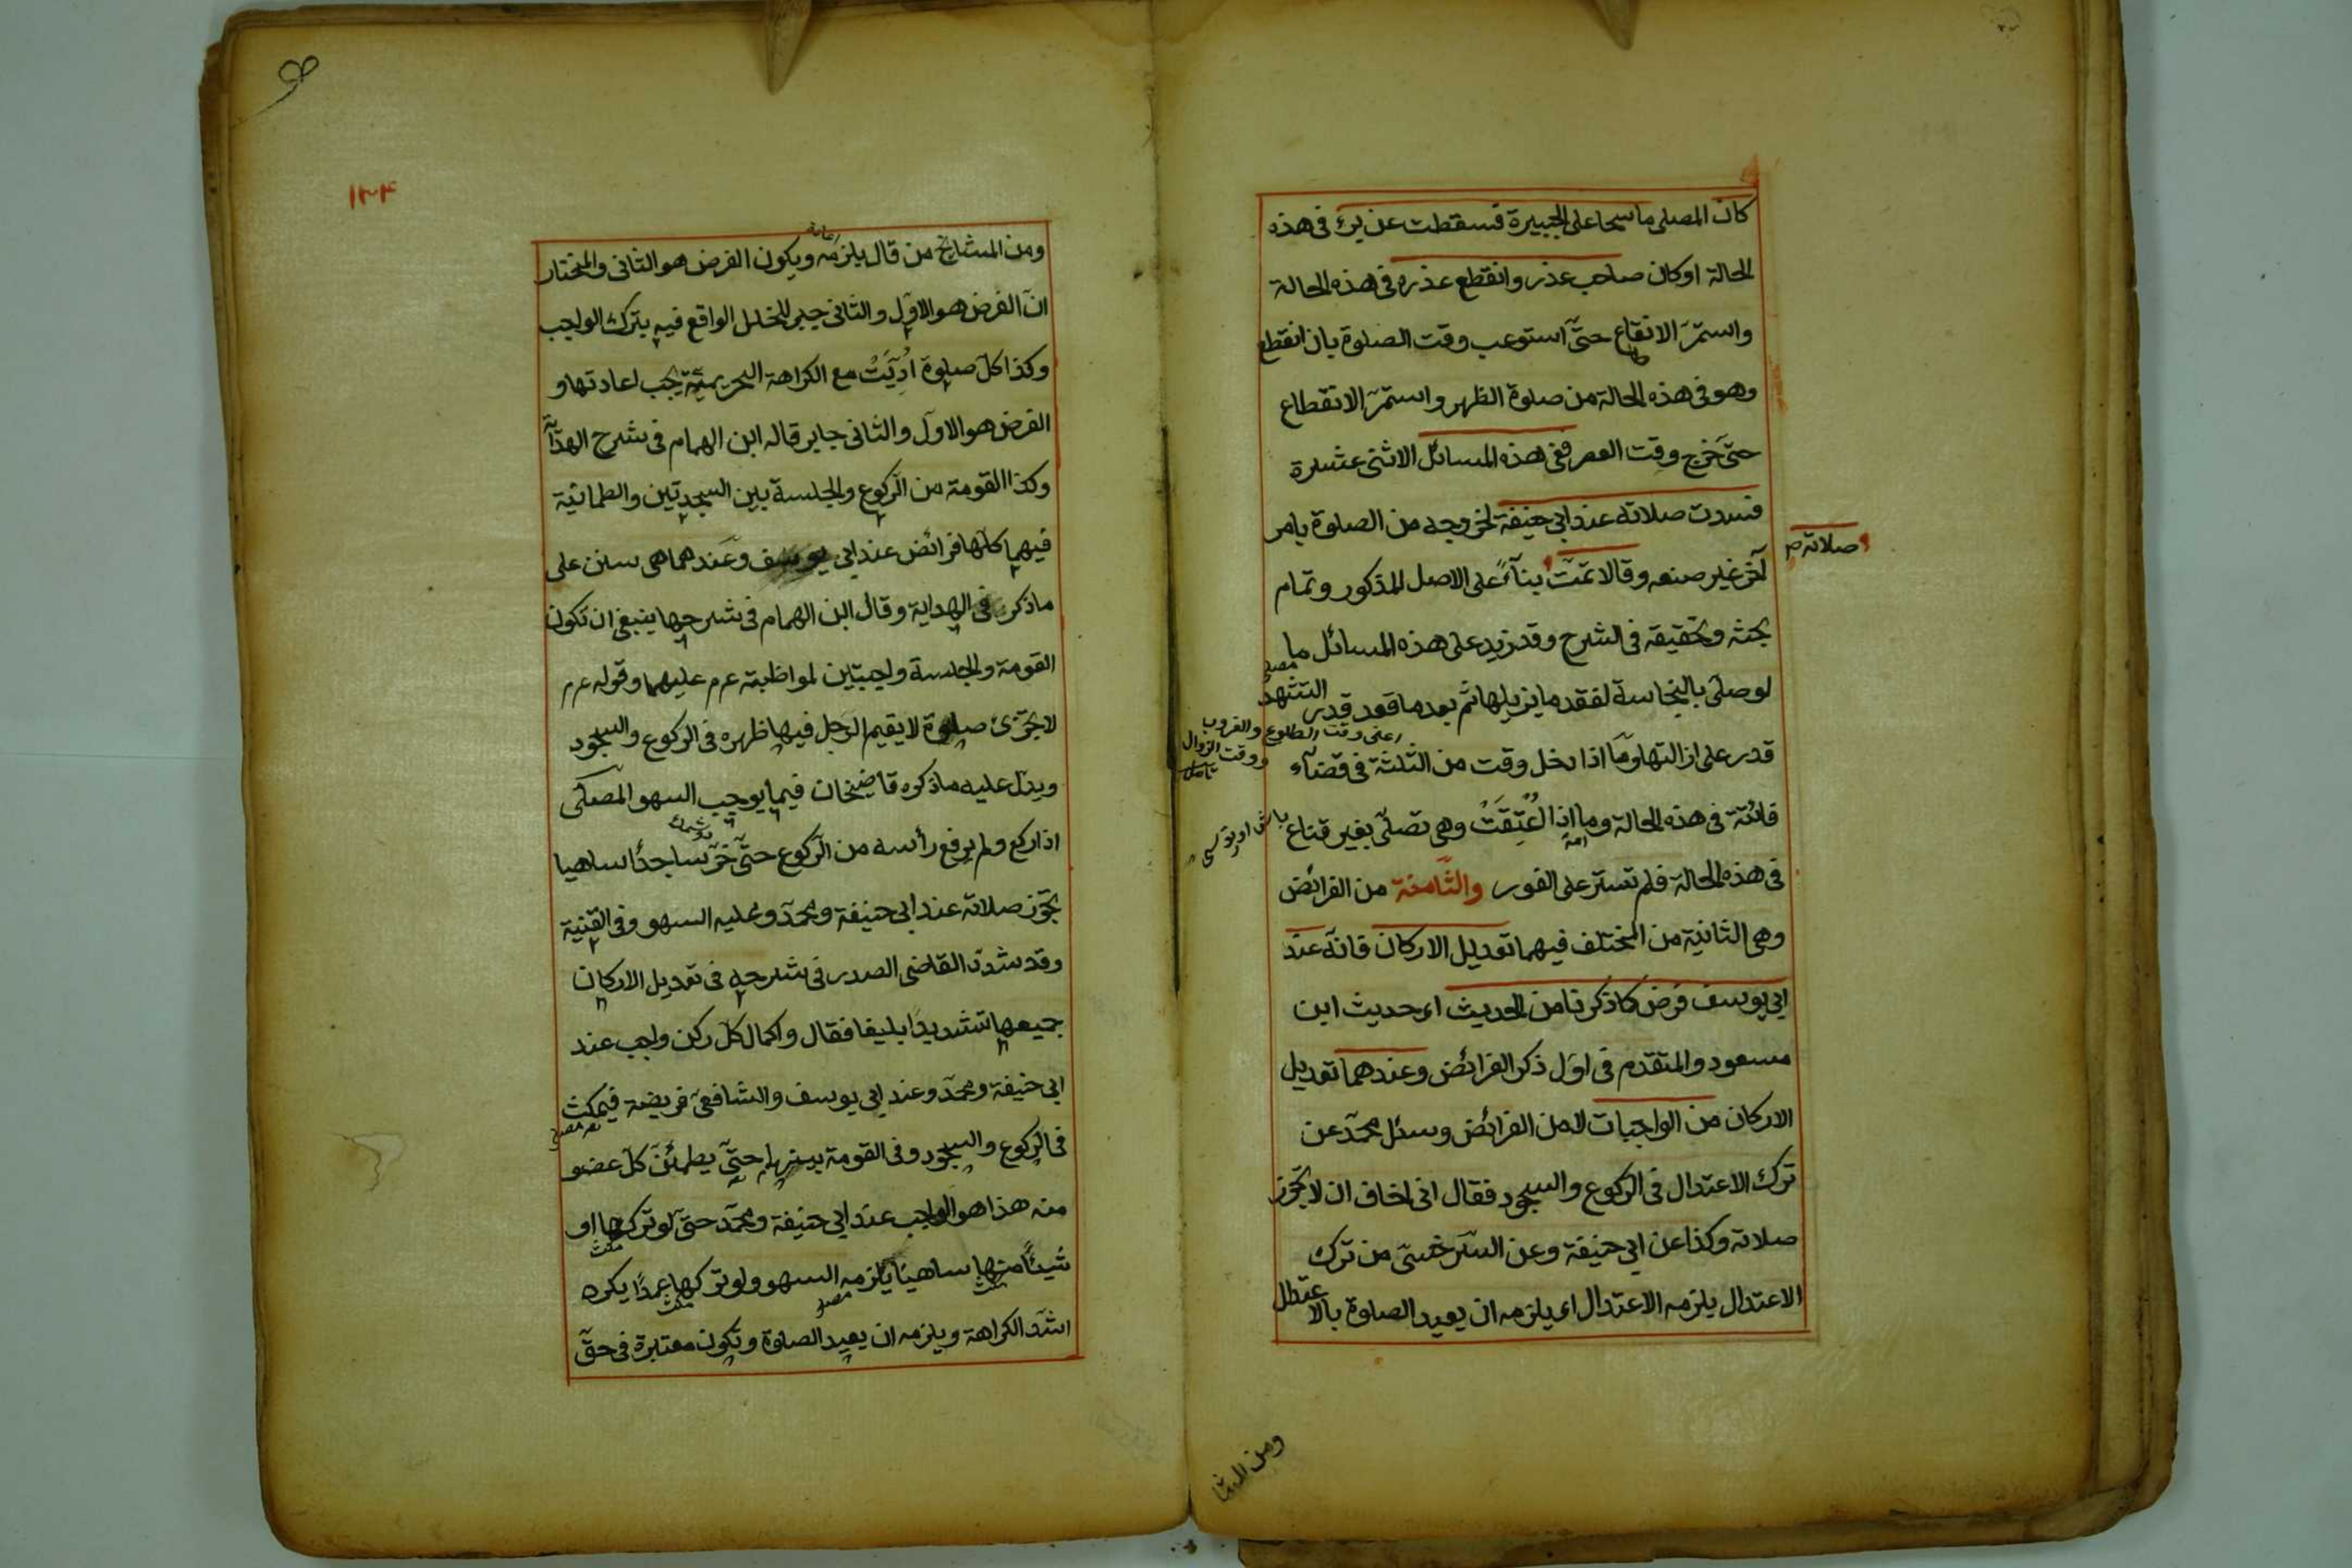 كان المصلى ماسحا على الجبيرة فسقطت عن برء فى هذه
الحالة او كان صاحب عذر وانقطع عذره فى هذه الحالة
واستمرّ الانقاع حتّى استوعب وقت الصلوة بان انقطع
وهو فى هذه الحالة من صلوة الظهر واستمرّ الانقطاع
حتّى خرج وقت العصر ففى هذه المسائل الاثنى عشرة
فسدت صلاته عند ابى حنيفة لخروجه من الصلوة بامر
آخر غير صنعه وقالا تمّت بناءً على الاصل المذكور وتمام
صلاته
بحثه وتحقيقه فى الشرح وقد زيد على هذه المسائل ما
لو صلّى بالنجاسة لفقد ما يزيلها ثم بعد ما قعد قدر التشهّد
قدر على ازالتها وما اذا دخل وقت من الثلثة فى قضاء
اعنى وقت الطلوع والغروب
ووقت الزوال
تأمل
فائتة فى هذه الحالة وما اذا اُعتِقَتْ وهى تصلّى بغير قناع
امة
باش اورتوسى
فى هذه الحالة فلم تستر على الفور والثّامنة من الفرائض
وهى الثانية من المختلف فيهما تعديل الاركان فانّه عند
ابى يوسف فرض كما ذكرنا من الحديث اى حديث ابن
مسعود والمتقدم فى اوّل ذكر الفرائض وعندهما تعديل
الاركان من الواجبات لا من الفرائض وسئل محمّد عن
ترك الاعتدال فى الركوع والسجود فقال انى اخاف ان لا تجوز
صلاته وكذا عن ابى حنيفة وعن السّرخسىّ من ترك
الاعتدال يلزمه الاعتدال اى يلزمه ان يعيد الصلوة بالاعتدال
ومن المشا
١٣٤
ومن المشايخ من قال يلزمه ويكون الفرض هو الثانى والمختار
انّ الفرض هو الاوّل والثانى جبر للخلل الواقع فيه بترك الواجب
وكذا كلّ صلوة اُدِّيَتْ مع الكراهة التحريميّة يجب اعادتها و
الفرض هو الاوّل والثانى جابر قاله ابن الهمام فى شرح الهداية
وكذا القومة من الرّكوع والجلسة بين السجدتين والطمانية
فيهما كلّها فرائض عند ابى يوسف وعندهما هى سنن على
ما ذكر فى الهداية وقال ابن الهمام فى شرحها ينبغى ان تكون
القومة والجلسة واجبتين لمواظبته عم عليهما وقوله عم
لا تجزئ صلوة لا يقيم الرّجل فيها ظهره فى الركوع والسجود
ويدلّ عليه ما ذكره قاضيخان فيما يوجب السهو المصلّى
اذا ركع ولم يرفع رأسه من الرّكوع حتّى خرّ ساجدًا ساهيا
تجوز صلاته عند ابى حنيفة ومحمّد وعليه السهو وفى القنية
وقد شدّد القاضى الصدر فى شرحه فى تعديل الاركان
جميعها تشديدًا بليغا فقال واكمال كلّ ركن واجب عند
ابى حنيفة ومحمّد وعند ابى يوسف والشافعىّ فريضة فيمكث
فى الركوع والسجود وفى القومة بينهما حتّى يطمئنّ كلّ عضو
منه هذا هو الواجب عند ابى حنيفة ومحمّد حتّى لو تركها او
شيئًا منها ساهيًا يلزمه السهو ولو تركها عمدًا يكره
اشدّ الكراهة ويلزمه ان يعيد الصلوة وتكون معتبرة فى حقّ